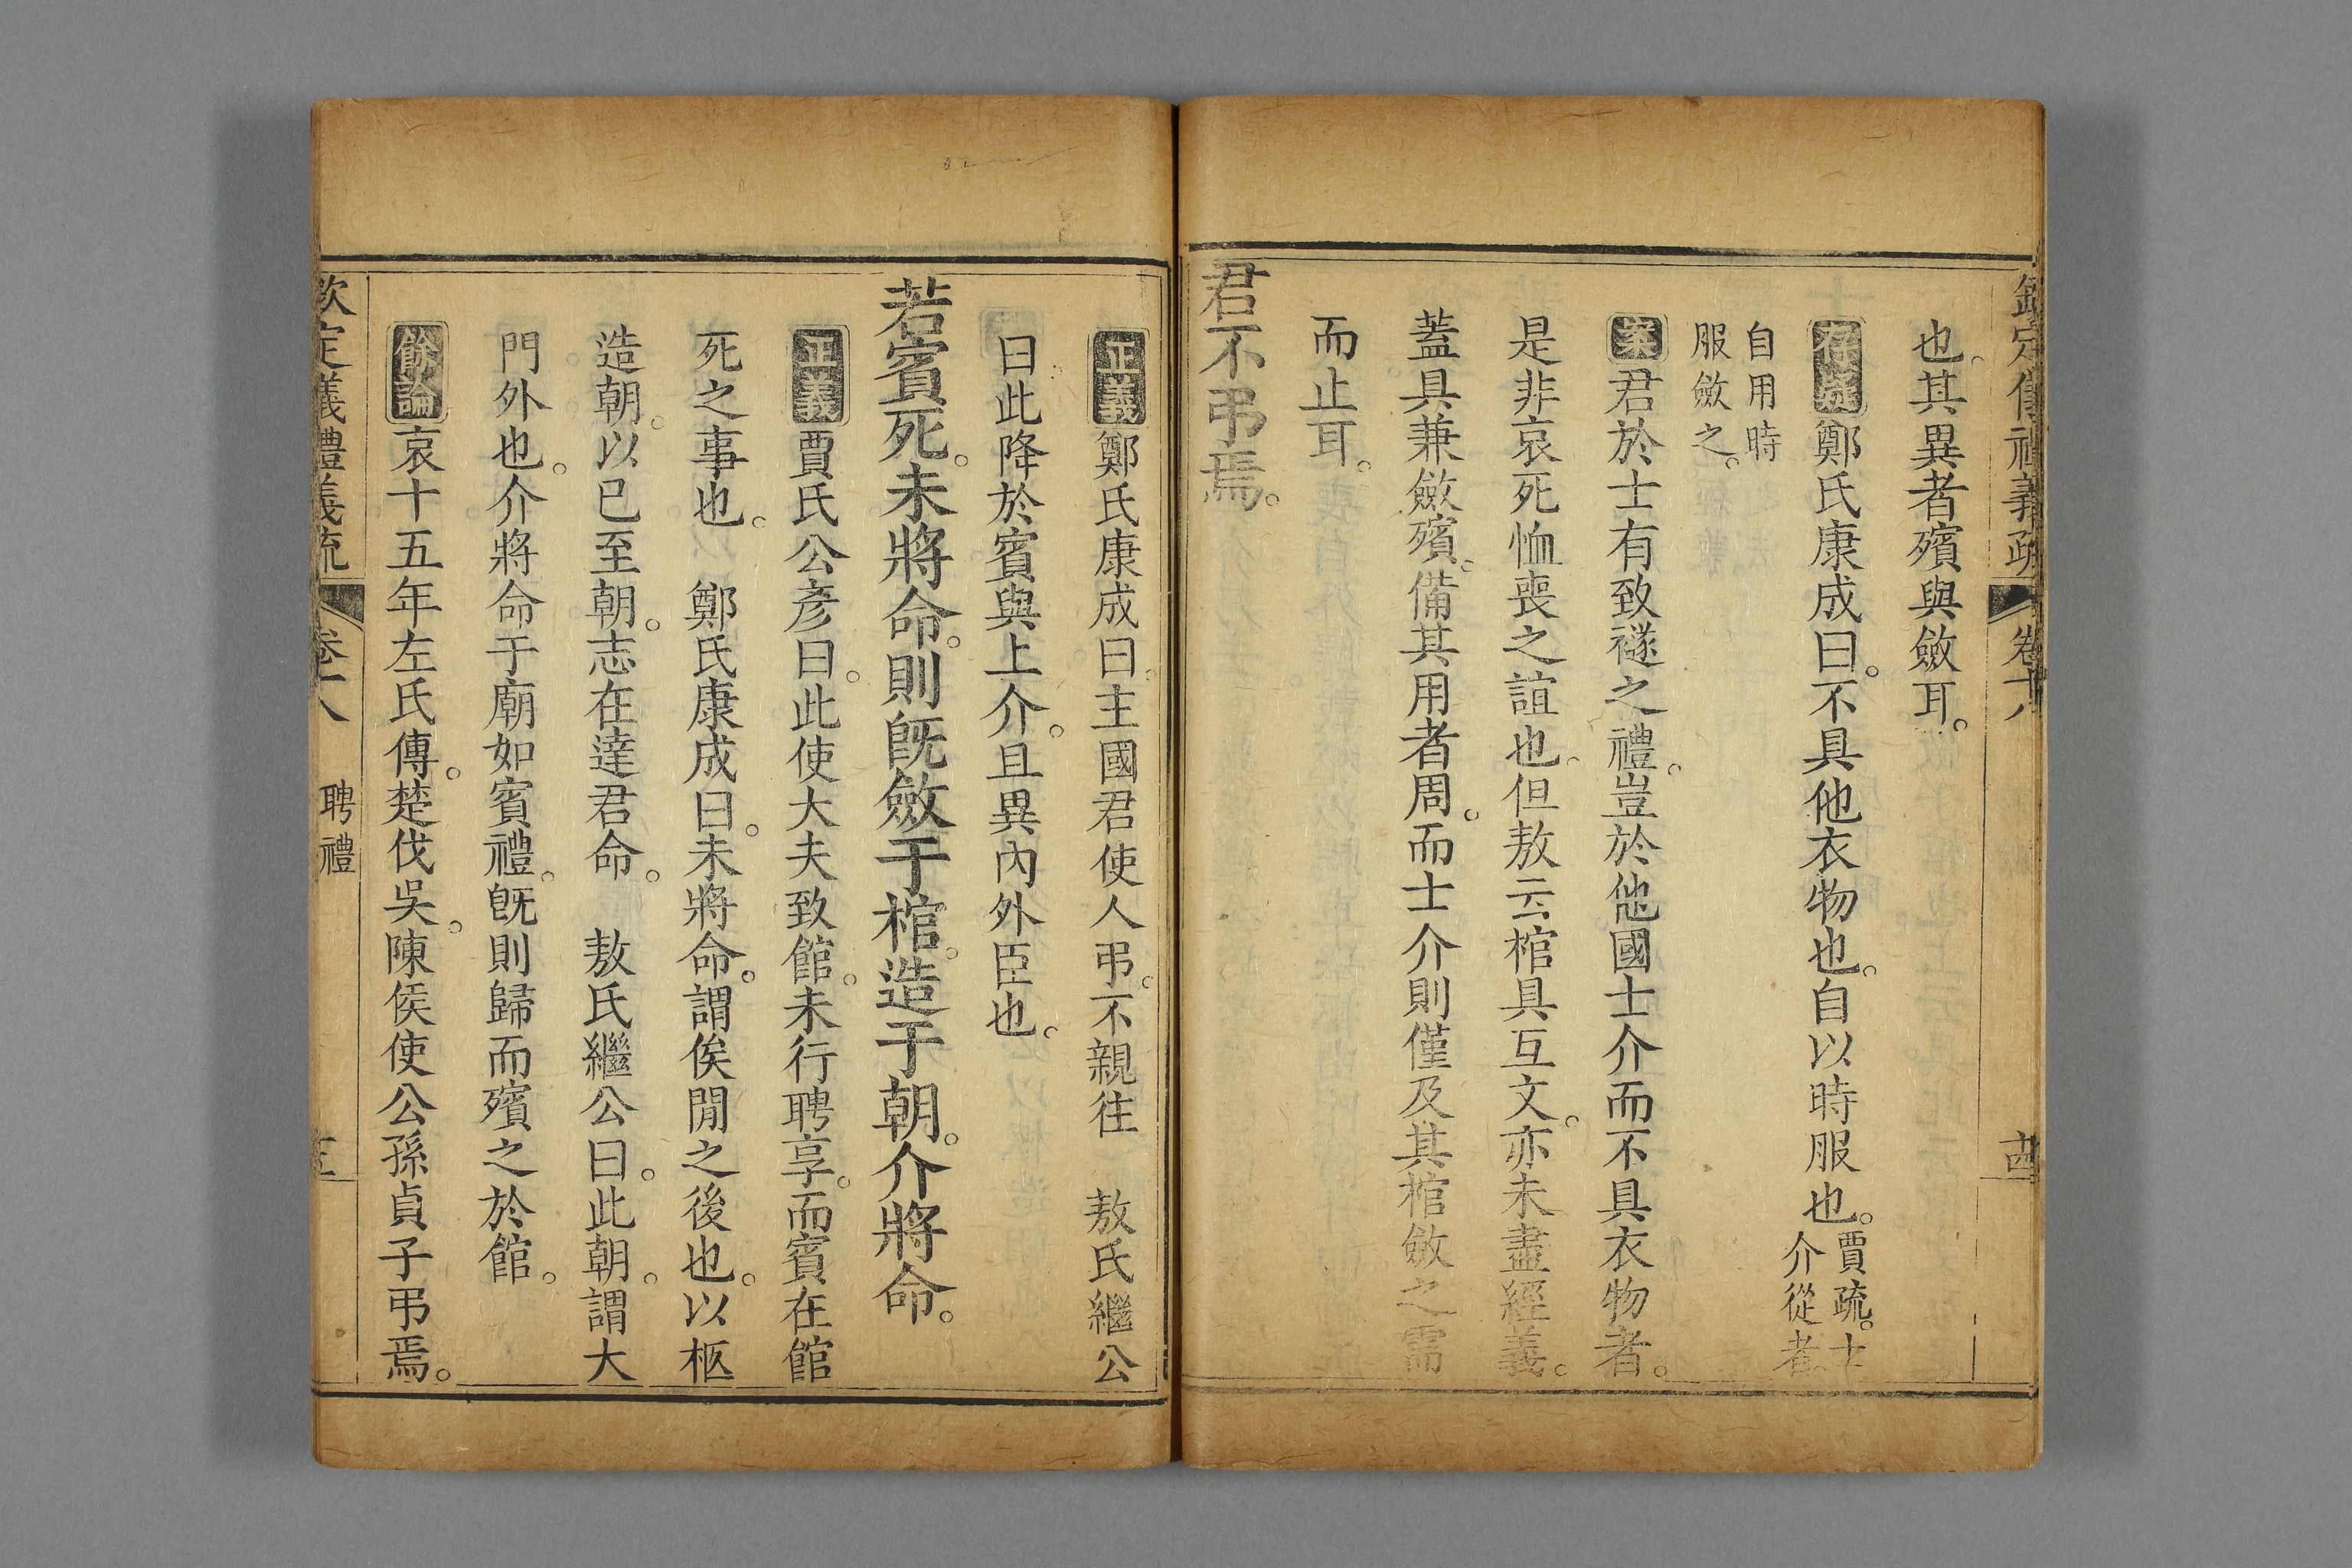 欽定儀禮義疏 卷十八
也。其異者殯與斂耳。
存疑鄭氏康成曰。不具他衣物也。自以時服也。賈疏。士介從者。
自用時服斂之。
案君於士有致襚之禮。豈於他國士介而不具衣物者。
是非哀死恤喪之誼也。但敖云棺具互文。亦未盡經義。
蓋具兼斂殯。備其用者周。而士介則僅及其棺斂之需
而止耳。
君不弔焉。
正義鄭氏康成曰主國君使人弔。不親往 敖氏繼公
曰此降於賓與上介。且異內外臣也。
若賓死。未將命。則既斂于棺。造于朝。介將命。
正義賈氏公彥曰。此使大夫致館。未行聘享。而賓在館
死之事也。 鄭氏康成曰。未將命。謂俟閒之後也。以柩
造朝。以已至朝。志在達君命。 敖氏繼公曰。此朝。謂大
門外也。介將命于廟如賓禮。既則歸而殯之於館。
餘論哀十五年左氏傳。楚伐吳。陳侯使公孫貞子弔焉。
欽定儀禮義疏 卷十八 聘禮